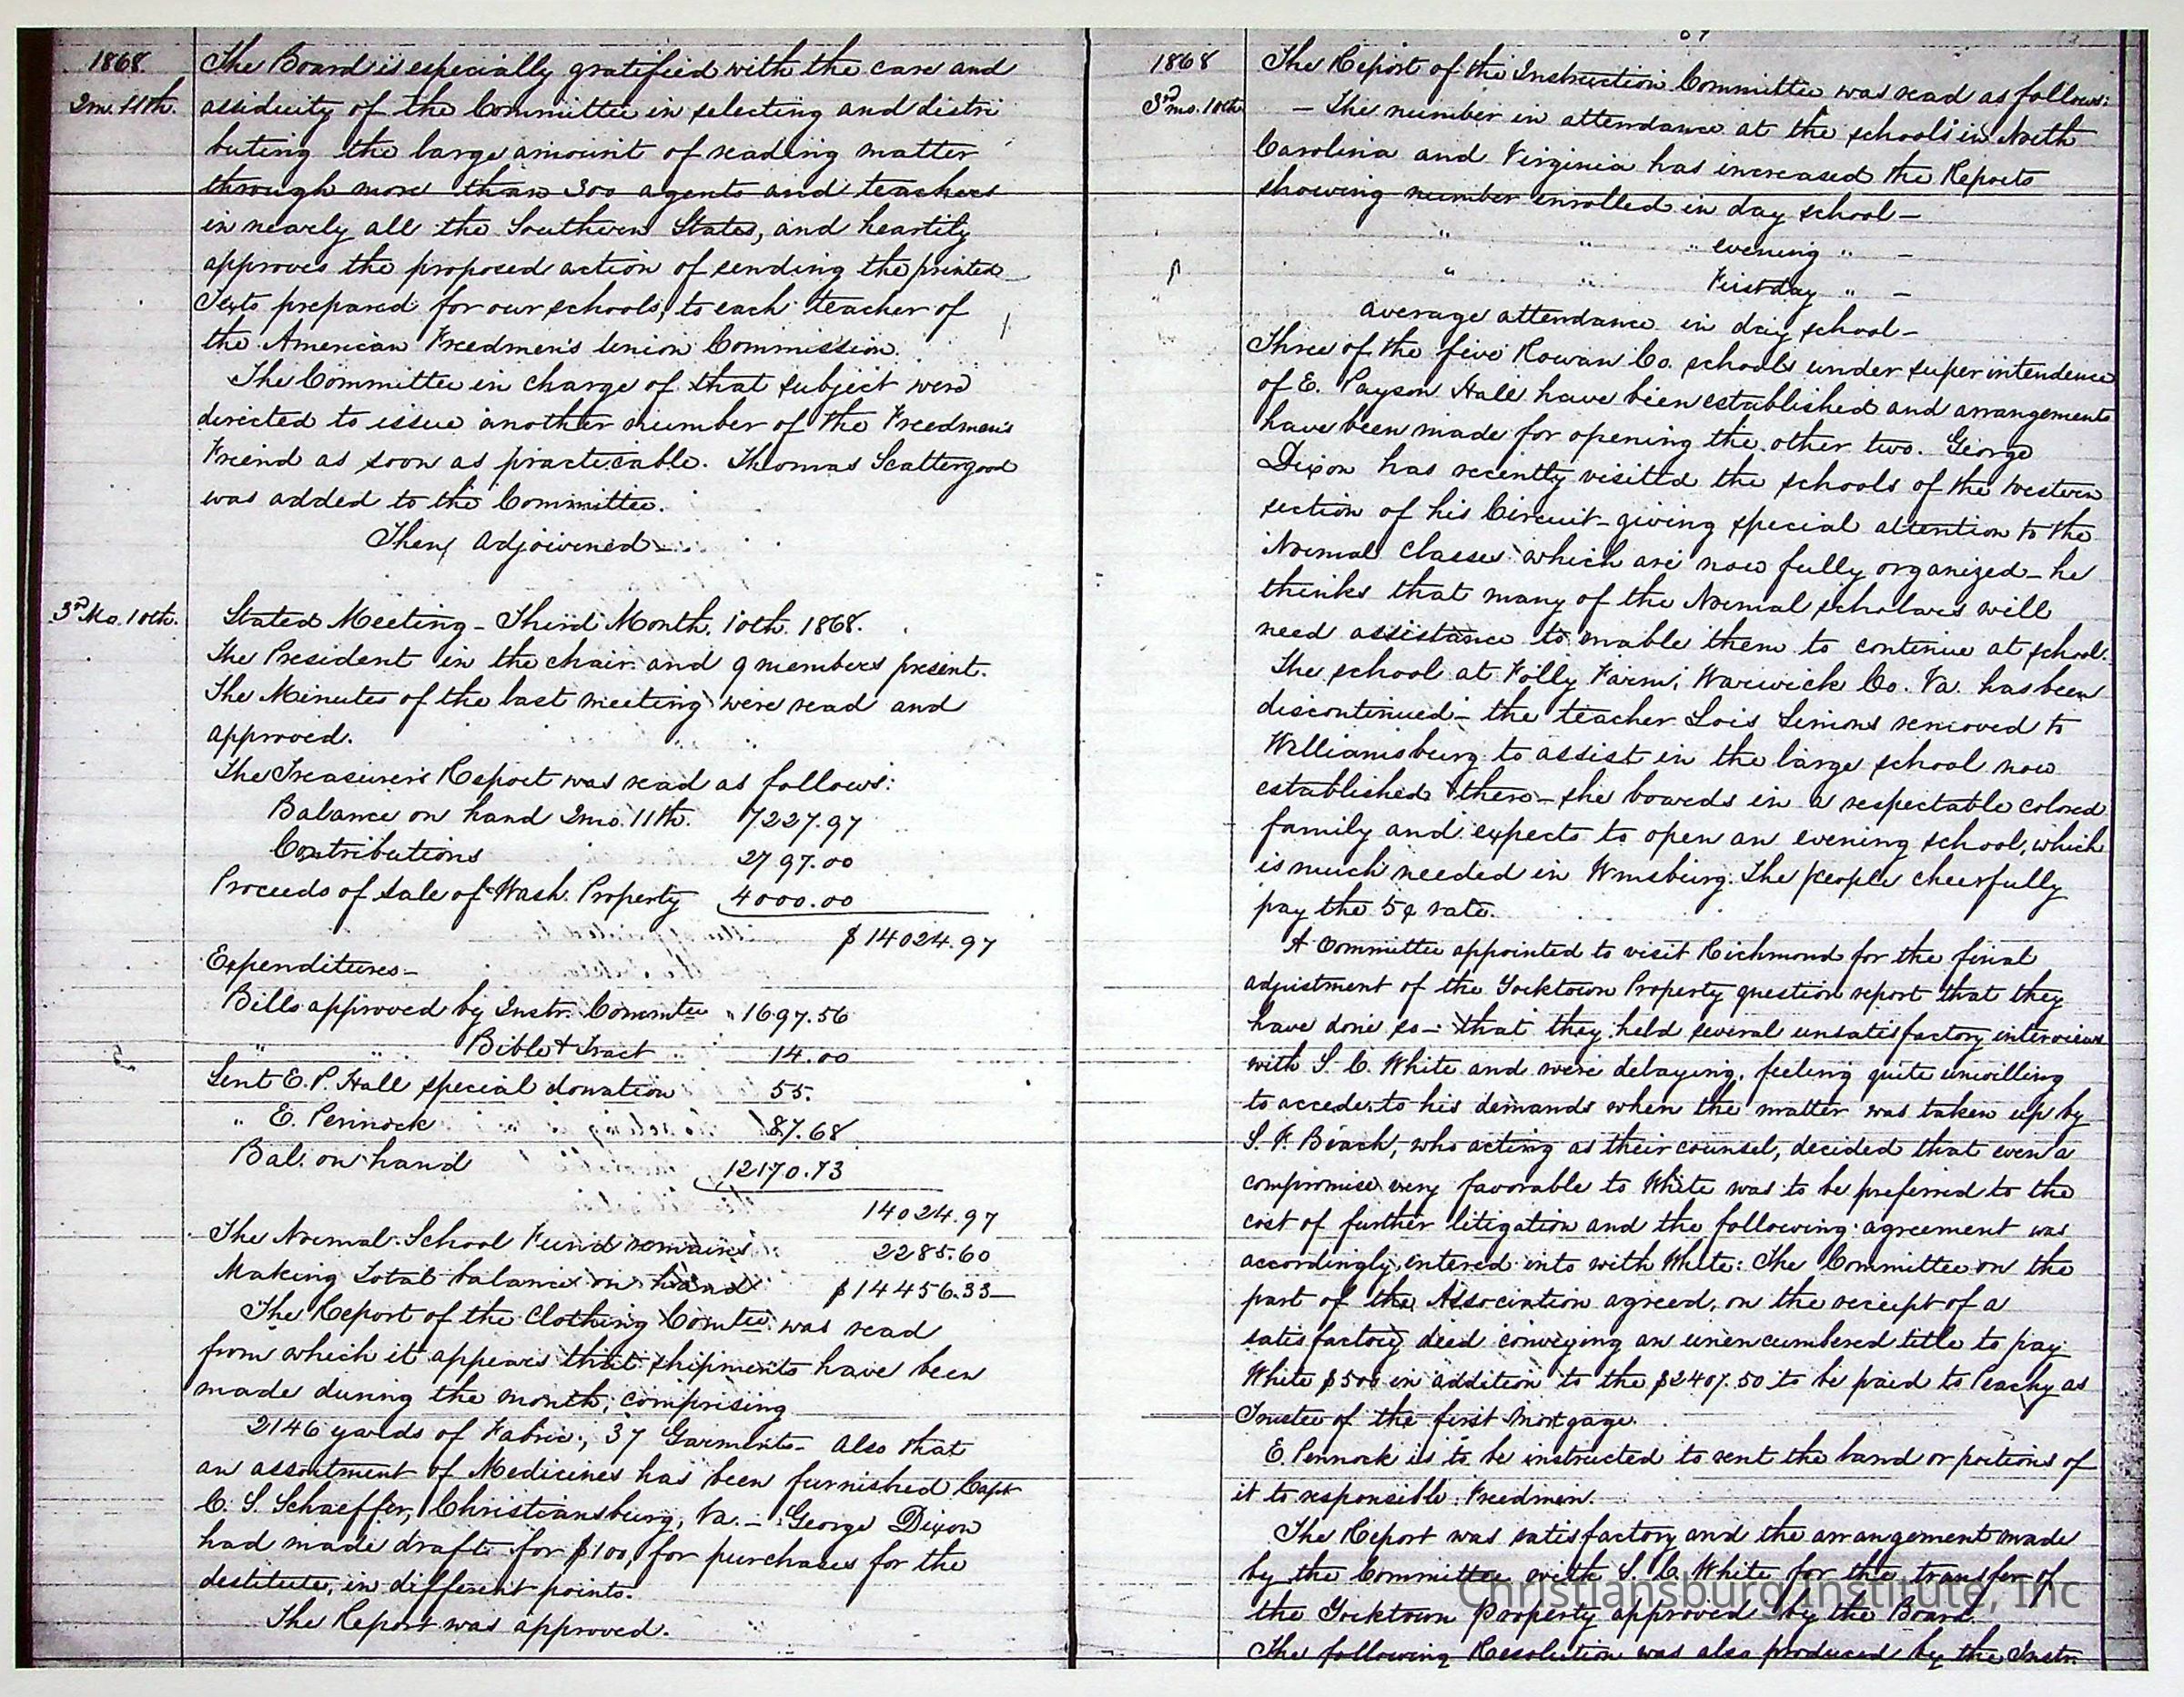 1868.
2m. 11th.
The Board is especially gratified with the care and
assiduity of the Committee in selecting and distri
buting the large amount of reading matter
through more than 300 agents and teachers
in nearly all the Southern States, and heartily
approves the proposed action of sending the printed
Texts prepared for our schools, to each teacher of
the American Freedmen's Union Commission.
The Committee in charge of that subject were
directed to issue another number of the Freedmen's
Friend as soon as practicable. Thomas Scattergood
was added to the Committee.
Then adjourned
3rd Mo. 10th.
Stated Meeting - Third Month. 10th. 1868.
The President in the chair and 9 members present.
The Minutes of the last meeting were read and
approved.
The Treasurer's Report was read as follows:
Balance on hand 2mo. 11th. 7227.97
Contributions 2797.00
Proceeds of Sale of Wash. Property 4000.00
$14024.97
Expenditures-
Bills approved by Instr. Commtee " 1697.56
" " Bible & Tract " 14.00
Sent E. P. Hall special donation 55.
" E. Pennock 87.68
Bal. on hand 12170.73
14024.97
The Normal School Fund remains 2285.60
Making total balance on hand $14456.33
The Report of the Clothing Comtee was read
from which it appears that shipments have been
made during the month, comprising
2146 yards of Fabric, 37 Garments - Also that
an assortment of Medicines has been furnished Capt
C. S. Schaeffer, Christiansburg, Va. - George Dixon
had made draft for $100, for purchases for the
destitute, in different points.
The Report was approved.
1868
3rd mo. 10th
The Report of the Instruction Committee was read as follows:
- The number in attendance at the schools in North
Carolina and Virginia has increased the Reports
showing number enrolled in day school -
" " " evening " -
" " Firstday " -
average attendance in day school -
Three of the five Rowan Co. schools under superintendence
of E. Payson Hall have been established and arrangements
have been made for opening the other two. George
Dixon has recently visited the schools of the western
section of his Circuit - giving special attention to the
Normal Classes which are now fully organized - he
thinks that many of the Normal scholars will
need assistance to enable them to continue at school.
The school at Folly Farm, Warwick Co. Va. has been
discontinued - the teacher Lois Simons removed to
Williamsburg to assist in the large school now
established there - she boards in a respectable colored
family and expects to open an evening school, which
is much needed in Wmsburg. The people cheerfully
pay the 5¢ rate.
A Committee appointed to visit Richmond for the final
adjustment of the Yorktown Property question report that they
have done so - that they held several unsatisfactory interviews
with S. C. White and were delaying, feeling quite unwilling
to accede to his demands when the matter was taken up by
S. F. Beach, who acting as their counsel, decided that even a
compromise very favorable to White was to be preferred to the
cost of further litigation and the following agreement was
accordingly entered into with White: The Committee on the
part of the Association agreed, on the receipt of a
satisfactory deed conveying an unencumbered title to pay
White $500 in addition to the $2407.50 to be paid to Peachy as
Trustee of the first Mortgage.
E. Pennock is to be instructed to rent the land or portions of
it to responsible Freedmen.
The Report was satisfactory and the arrangement made
by the Committee with S. C. White for the transfer of
the Yorktown Property approved by the Board.
The following Resolution was also produced by the Instr.
Christiansburg Institute, Inc